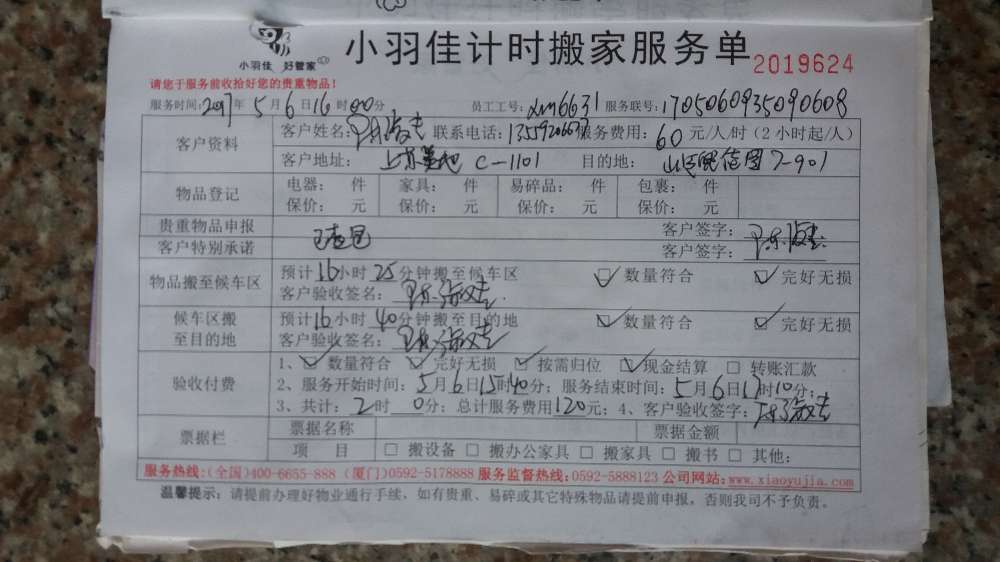 小羽佳 好管家
小羽佳计时搬家服务单 2019624
请您于服务前收拾好您的贵重物品！
服务时间：2017年5月6日16时00分 员工工号：xm6631 服务联号：1705060935090608
客户资料 客户姓名： 联系电话： 服务费用：60元/人/时（2小时起/人）
客户地址： C-1101 目的地： 7-901
物品登记 电器： 件 家具： 件 易碎品： 件 包裹： 件
保价： 元 保价： 元 保价： 元 保价： 元
贵重物品申报 客户签字：
客户特别承诺 客户签字：
物品搬至候车区 预计16小时25分钟搬至候车区 数量符合 完好无损
客户验收签名：
候车区搬至目的地 预计16小时40分钟搬至目的地 数量符合 完好无损
客户验收签名：
验收付费 1、数量符合 完好无损 按需归位 现金结算 转账汇款
2、服务开始时间：5月6日15时40分；服务结束时间：5月6日17时10分；
3、共计：2时0分；总计服务费用120元；4、客户验收签字：
票据栏 票据名称 票据金额
项 目 搬设备 搬办公家具 搬家具 搬书 其他：
服务热线：（全国）400-6655-888（厦门）0592-5178888 服务监督热线：0592-5888123 公司网站：www.xiaoyujia.com
温馨提示：请提前办理好物业通行手续，如有贵重、易碎或其它特殊物品请提前申报，否则我司不予负责。